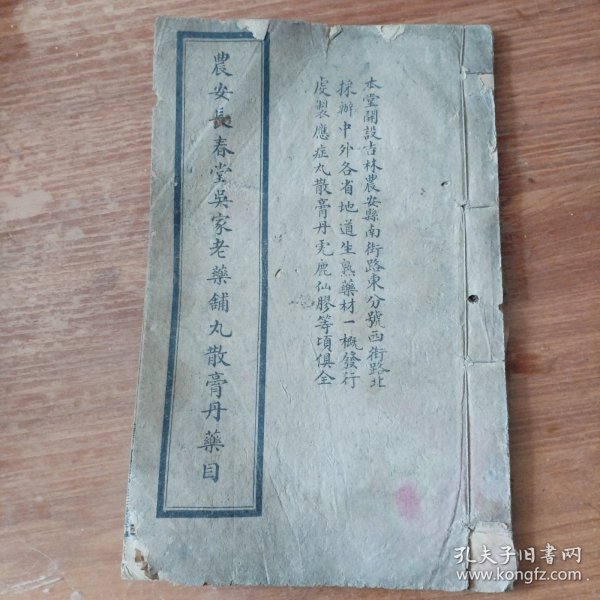 本堂開設吉林農安縣南街路東分號西街路北
採辦中外各省地道生熟藥材一概發行
虔製應症丸散膏丹虎鹿仙膠等項俱全
農安長春堂吳家老藥舖丸散膏丹藥目
孔夫子旧书网
www.kongfz.com